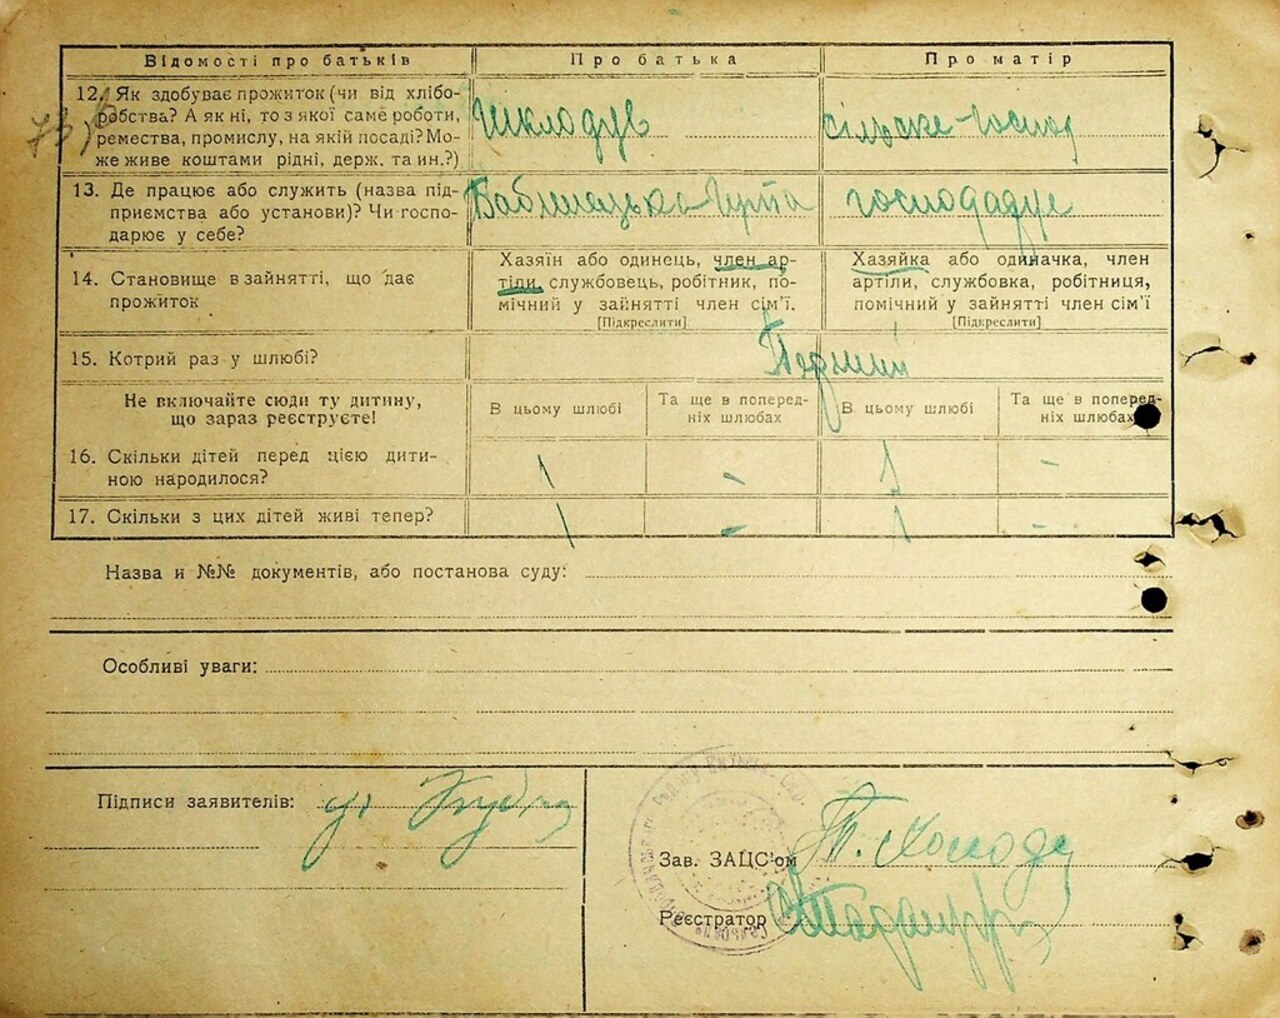 Відомості про батьків
Про батька
Про матір
12. Як здобуває прожиток (чи від хлібо-
робства? А як ні, то з якої саме роботи,
ремества, промислу, на якій посаді? Мо-
же живе коштами рідні, держ. та ин.?)
Шклодув
сільске-господ
13. Де працює або служить (назва під-
приємства або установи)? Чи госпо-
дарює у себе?
господадує
14. Становище в зайнятті, що дає
прожиток
Хазяїн або одинець, член ар-
тіли, службовець, робітник, по-
мічний у зайнятті член сім'ї.
[Підкреслити]
Хазяйка або одиначка, член
артіли, службовка, робітниця,
помічний у зайнятті член сім'ї
[Підкреслити]
15. Котрий раз у шлюбі?
Перший
Не включайте сюди ту дитину,
що зараз реєструєте!
В цьому шлюбі
Та ще в поперед-
ніх шлюбах
В цьому шлюбі
Та ще в поперед-
ніх шлюбах
16. Скільки дітей перед цією дити-
ною народилося?
1 - 1 -
17. Скільки з цих дітей живі тепер?
1 - 1 -
Назва и №№ документів, або постанова суду:
Особливі уваги:
Підписи заявителів:
Зав. ЗАЦС'ом
Реєстратор